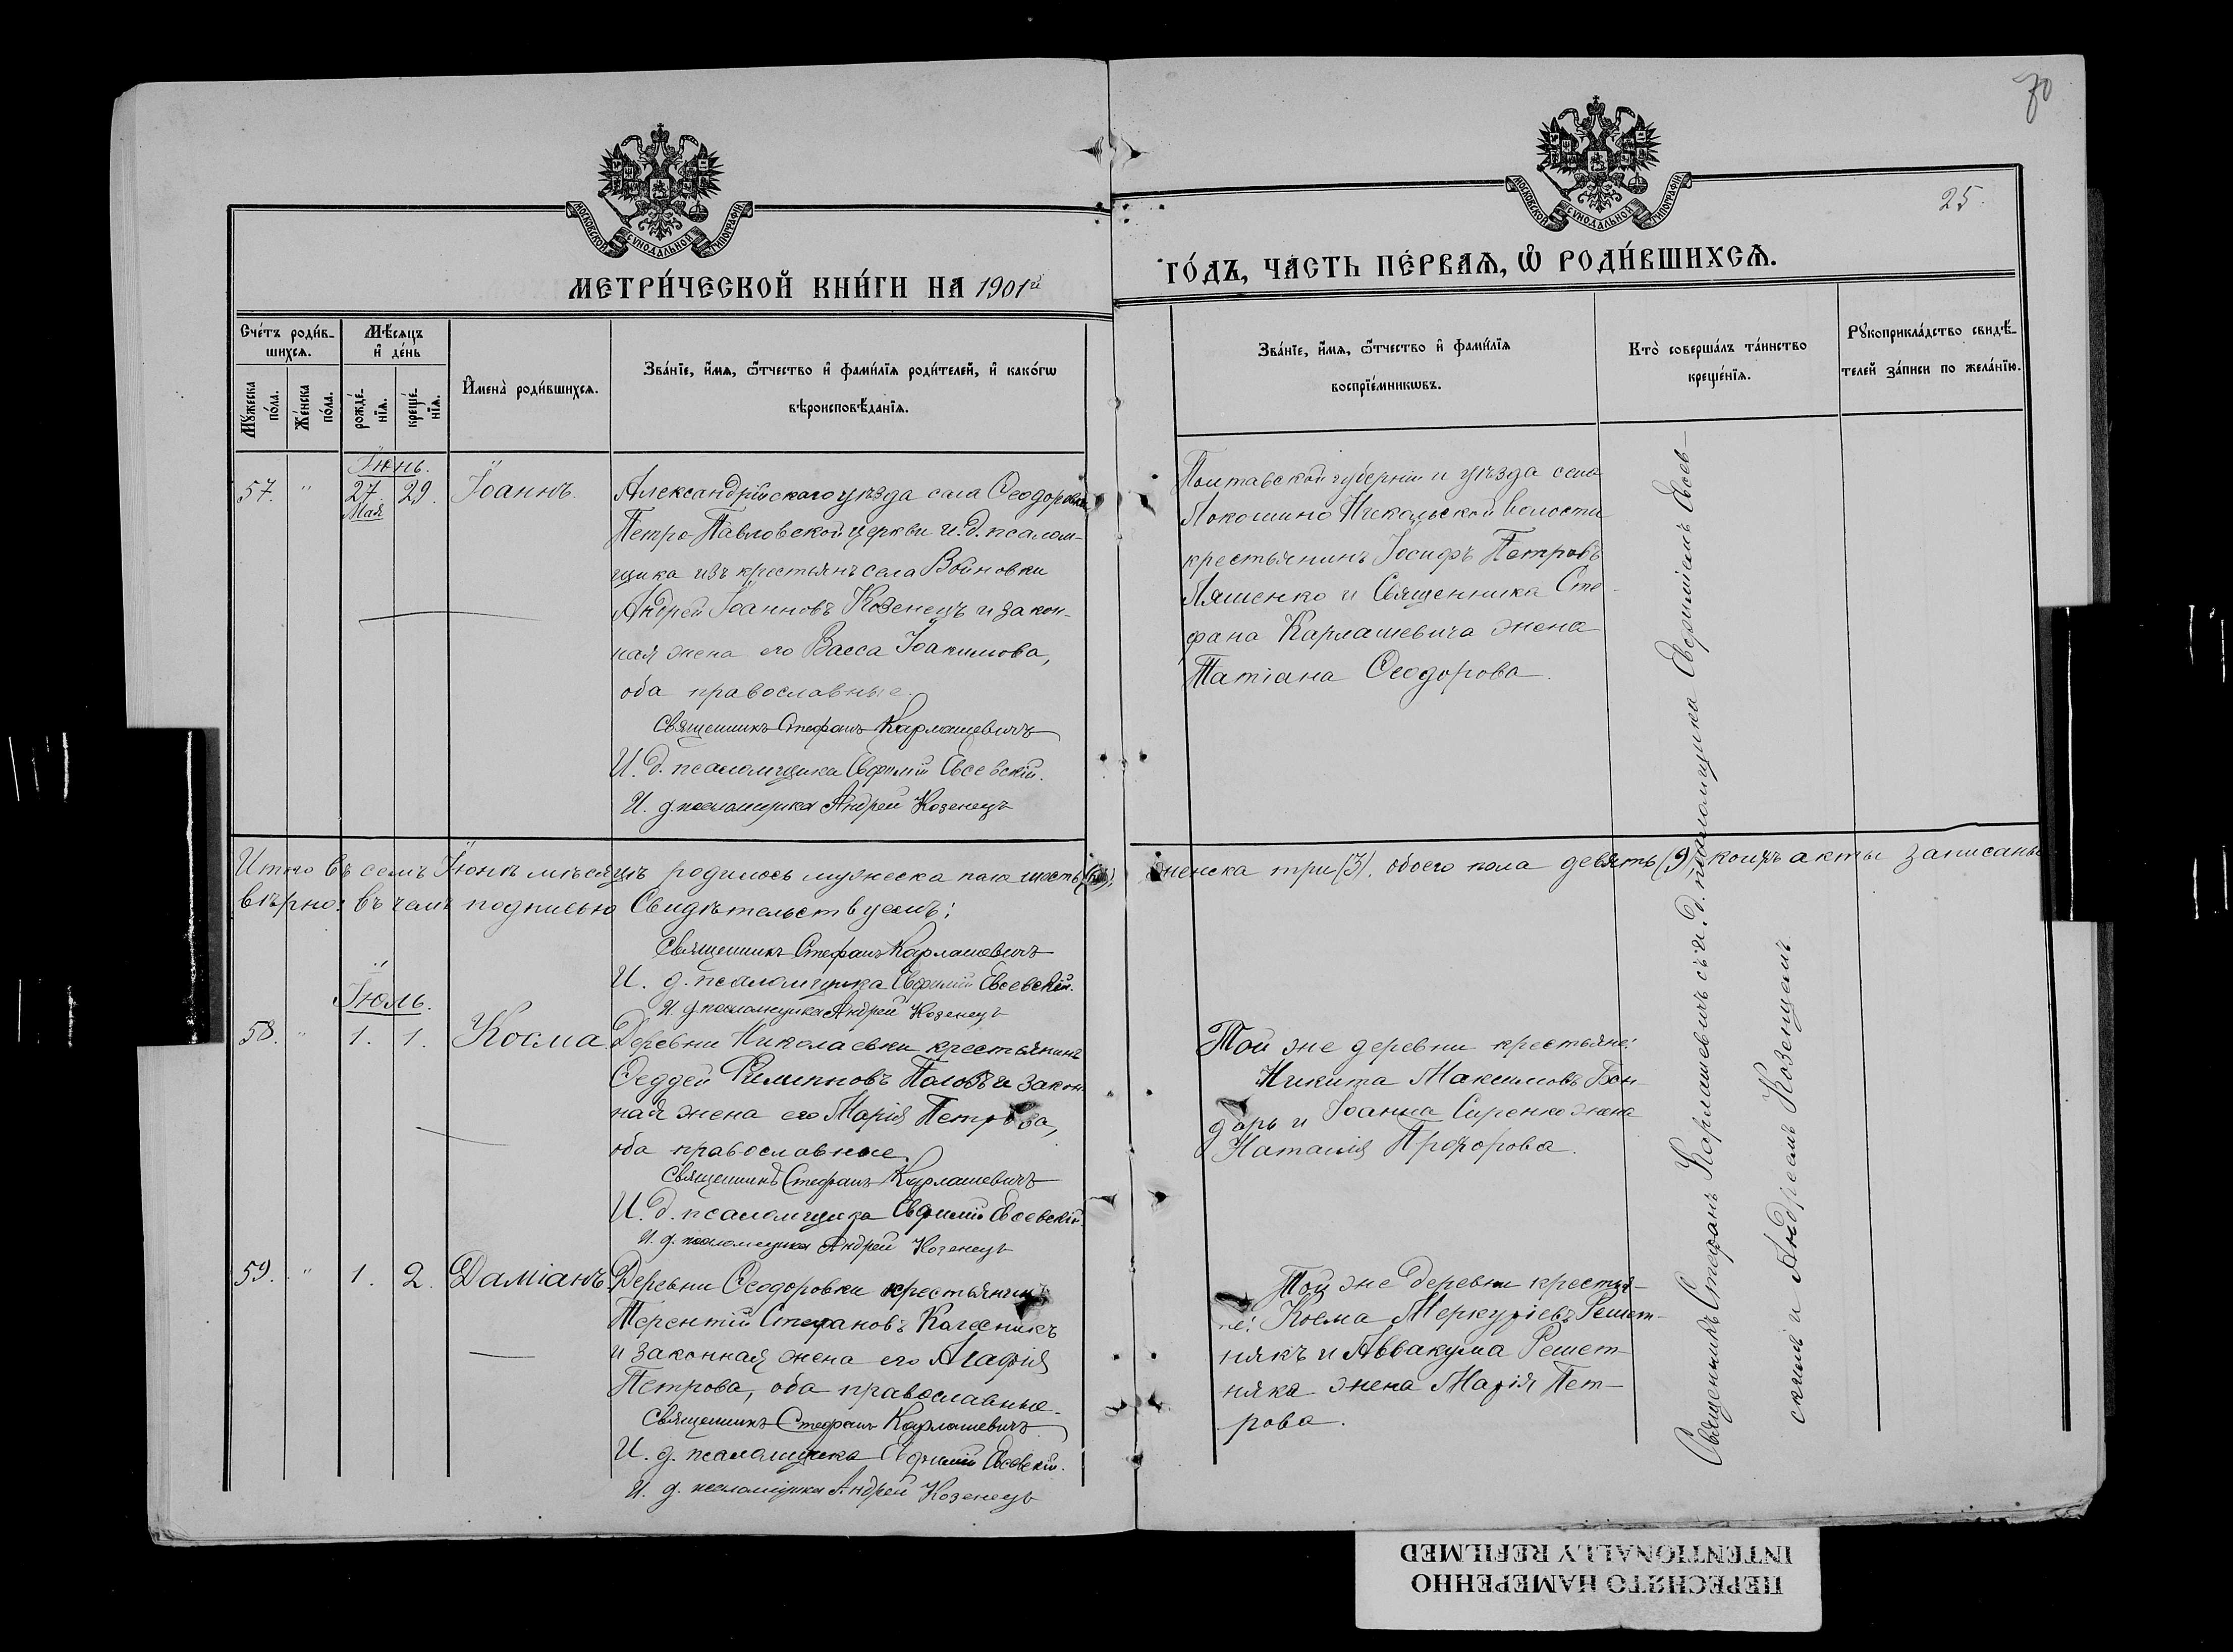 70
25.
МОСКОВСКОЙ СѴНОДАЛЬНОЙ ТИПОГРАФІИ
МОСКОВСКОЙ СѴНОДАЛЬНОЙ ТИПОГРАФІИ
МЕТРИ́ЧЕСКОЙ КНИ́ГИ НА 1901й
ГО́ДЪ, ЧА́СТЬ ПЕ́РВАѦ, Ѽ РОДИ́ВШИХСѦ.
Сче́тъ роди́в-
шихсѧ.
Мꙋ́жеска
по́ла.
Же́нска
по́ла.
Мѣ́сѧцъ
и҆ де́нь
рожде́-
нїѧ.
креще́-
нїѧ.
И҆мена̀ роди́вшихсѧ.
Зва́нїе, и҆́мѧ, ѻ҆́тчество и҆ фами́лїѧ роди́телей, и҆ како́гѡ
вѣроисповѣ́данїѧ.
Зва́нїе, и҆́мѧ, ѻ҆́тчество и҆ фами́лїѧ
воспрїе́мникѡвъ.
Кто̀ соверша́лъ та́инство
креще́нїѧ.
Рꙋкоприкла́дство свидѣ́-
телей за́писи по жела́нїю.
Іюнь.
57. " 27 29. Іоаннъ.
Мая
Александрійскаго уѣзда села Ѳеодоровки
Петро-Павловской церкви и. д. псалом-
щика изъ крестьянъ села Войновки
Андрей Іоанновъ Козенецъ и закон-
ная жена его Васса Іоакимова,
оба православные.
Священникъ Стефанъ Карлашевичъ
И. д. псаломщика Евфимій Евсевскій.
И. д. псаломщика Андрей Козенецъ
Полтавской губерніи и уѣзда села
Никольской волости
крестьянинъ Іосифъ Петровъ
Ляшенко и Священника Сте-
фана Карлашевича жена
Татіана Ѳеодорова.
Итого въ семъ Іюнѣ мѣсяцѣ родилось мужеска пола шесть (6), женска три (3), обоего пола девять (9), акты записаны
вѣрно: въ чемъ подписью Свидѣтельствуемъ:
Священникъ Стефанъ Карлашевичъ
И. д. псаломщика Евфимій Евсевскій.
И. д. псаломщика Андрей Козенецъ
Іюль.
58. " 1. 1. Косма.
Деревни Николаевки крестьянинъ
Ѳеддей Филипповъ и закон-
ная жена его Марія Петрова,
оба православные.
Священникъ Стефанъ Карлашевичъ
И. д. псаломщика Евфимій Евсевскій.
И. д. псаломщика Андрей Козенецъ
Той же деревни крестьяне:
Никита Максимовъ Бон-
дарь и Іоанна Сиренко жена
Наталія Прохорова.
59. " 1. 2. Даміанъ.
Деревни Ѳеодоровки крестьянинъ
Терентій Стефановъ Колесникъ
и законная жена его Агафія
Петрова, оба православные.
Священникъ Стефанъ Карлашевичъ
И. д. псаломщика Евфимій Евсевскій.
И. д. псаломщика Андрей Козенецъ
Той же деревни крестья-
не: Косма Меркуріевъ Решет-
някъ и Аввакума Решет-
няка жена Марія Пет-
рова.
Священникъ Стефанъ Карлашевичъ съ и. д. псаломщика Евфиміемъ Евсев-
скимъ и Андреемъ Козенцемъ
ПЕРЕСНЯТО НАМЕРЕННО
INTENTIONALLY REFILMED